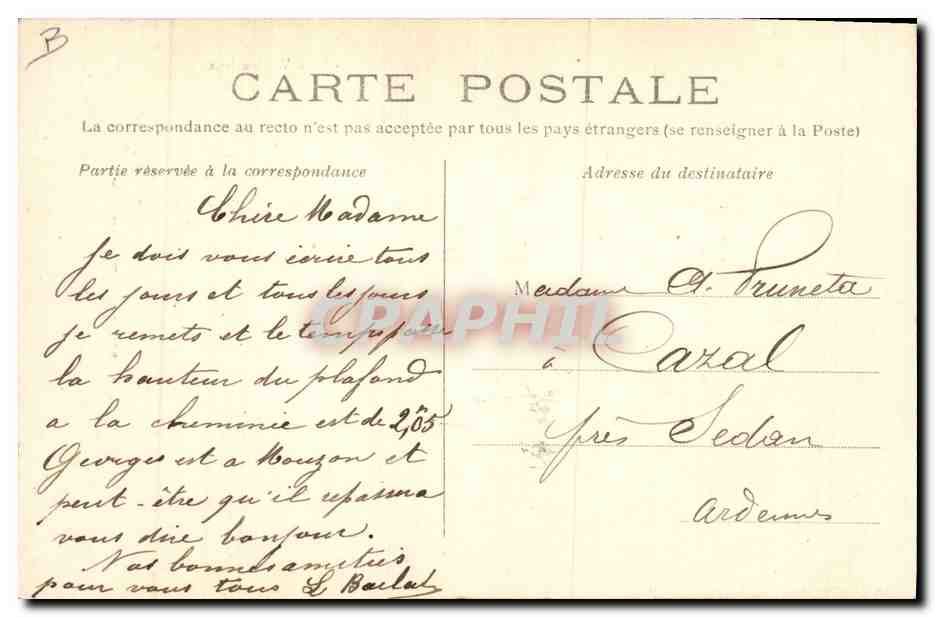 B
CARTE POSTALE
La correspondance au recto n'est pas acceptée par tous les pays étrangers (se renseigner à la Poste)
Partie réservée à la correspondance
Chère Madame
Je dois vous écrire tous
les jours et tous les jours
je remets et le temps passe
la hauteur du plafond
a la cheminée est de 2,m05
Georges est a Mouzon et
peut-être qu'il repassera
vous dire bonjour.
Nos bonnes amitiés
pour vous tous L
Adresse du destinataire
Madame A. Pruneta
à Cazal
près Sedan
Ardennes
CPAPHIL